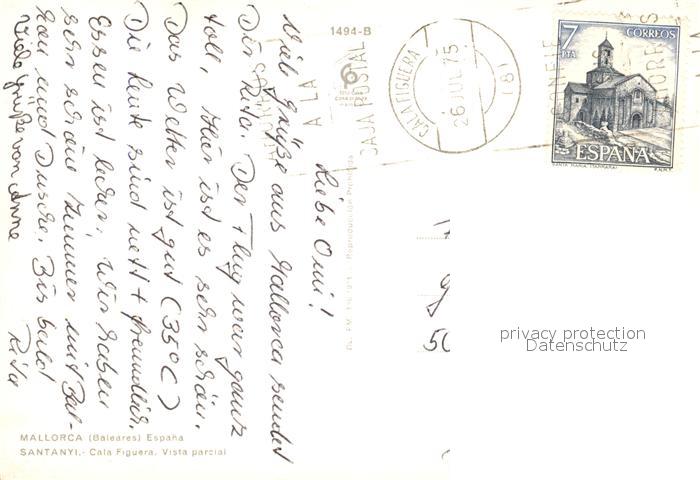 Liebe Omi!
Viele Grüße aus Mallorca sendet
Dir Rita. Der Flug war ganz
toll. Hier ist es sehr schön.
Das Wetter ist gut (35°C)
Die Leute sind nett + freundlich.
Essen ist lecker, wir haben
sehr schöne Zimmer mit Bal-
kon und Dusche. Bis bald
Rita
Viele Grüße von Anne
1494-B
A LA
CAJA POSTAL
CALA FIGUERA
26 JUL 75
(8)
7
PTA
CORREOS
ESPAÑA
Reproducción Prohibida
50
privacy protection
Datenschutz
MALLORCA (Baleares) España
SANTANYI.- Cala Figuera. Vista parcial